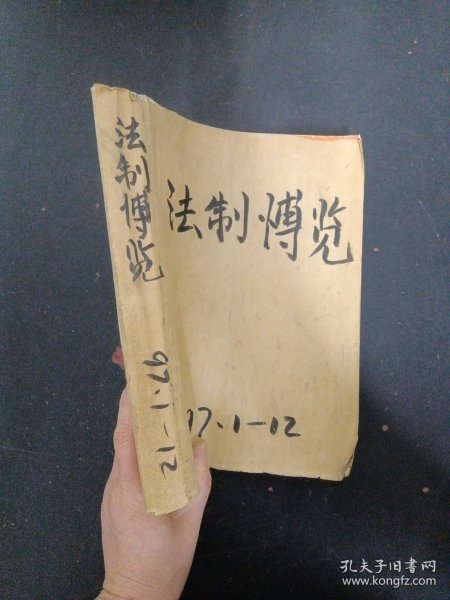 法制博览
97.1-12
法制博览
97.1-12
孔夫子旧书网
www.kongfz.com